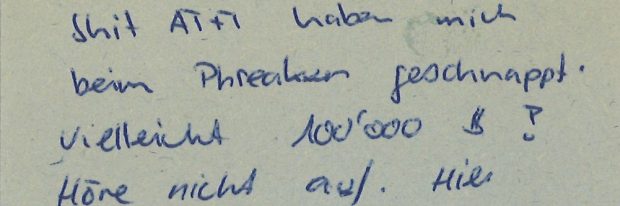 Shit AT+T haben mich
beim Phreaken geschnappt.
vielleicht 100'000 $ ?
Höre nicht auf. Hier